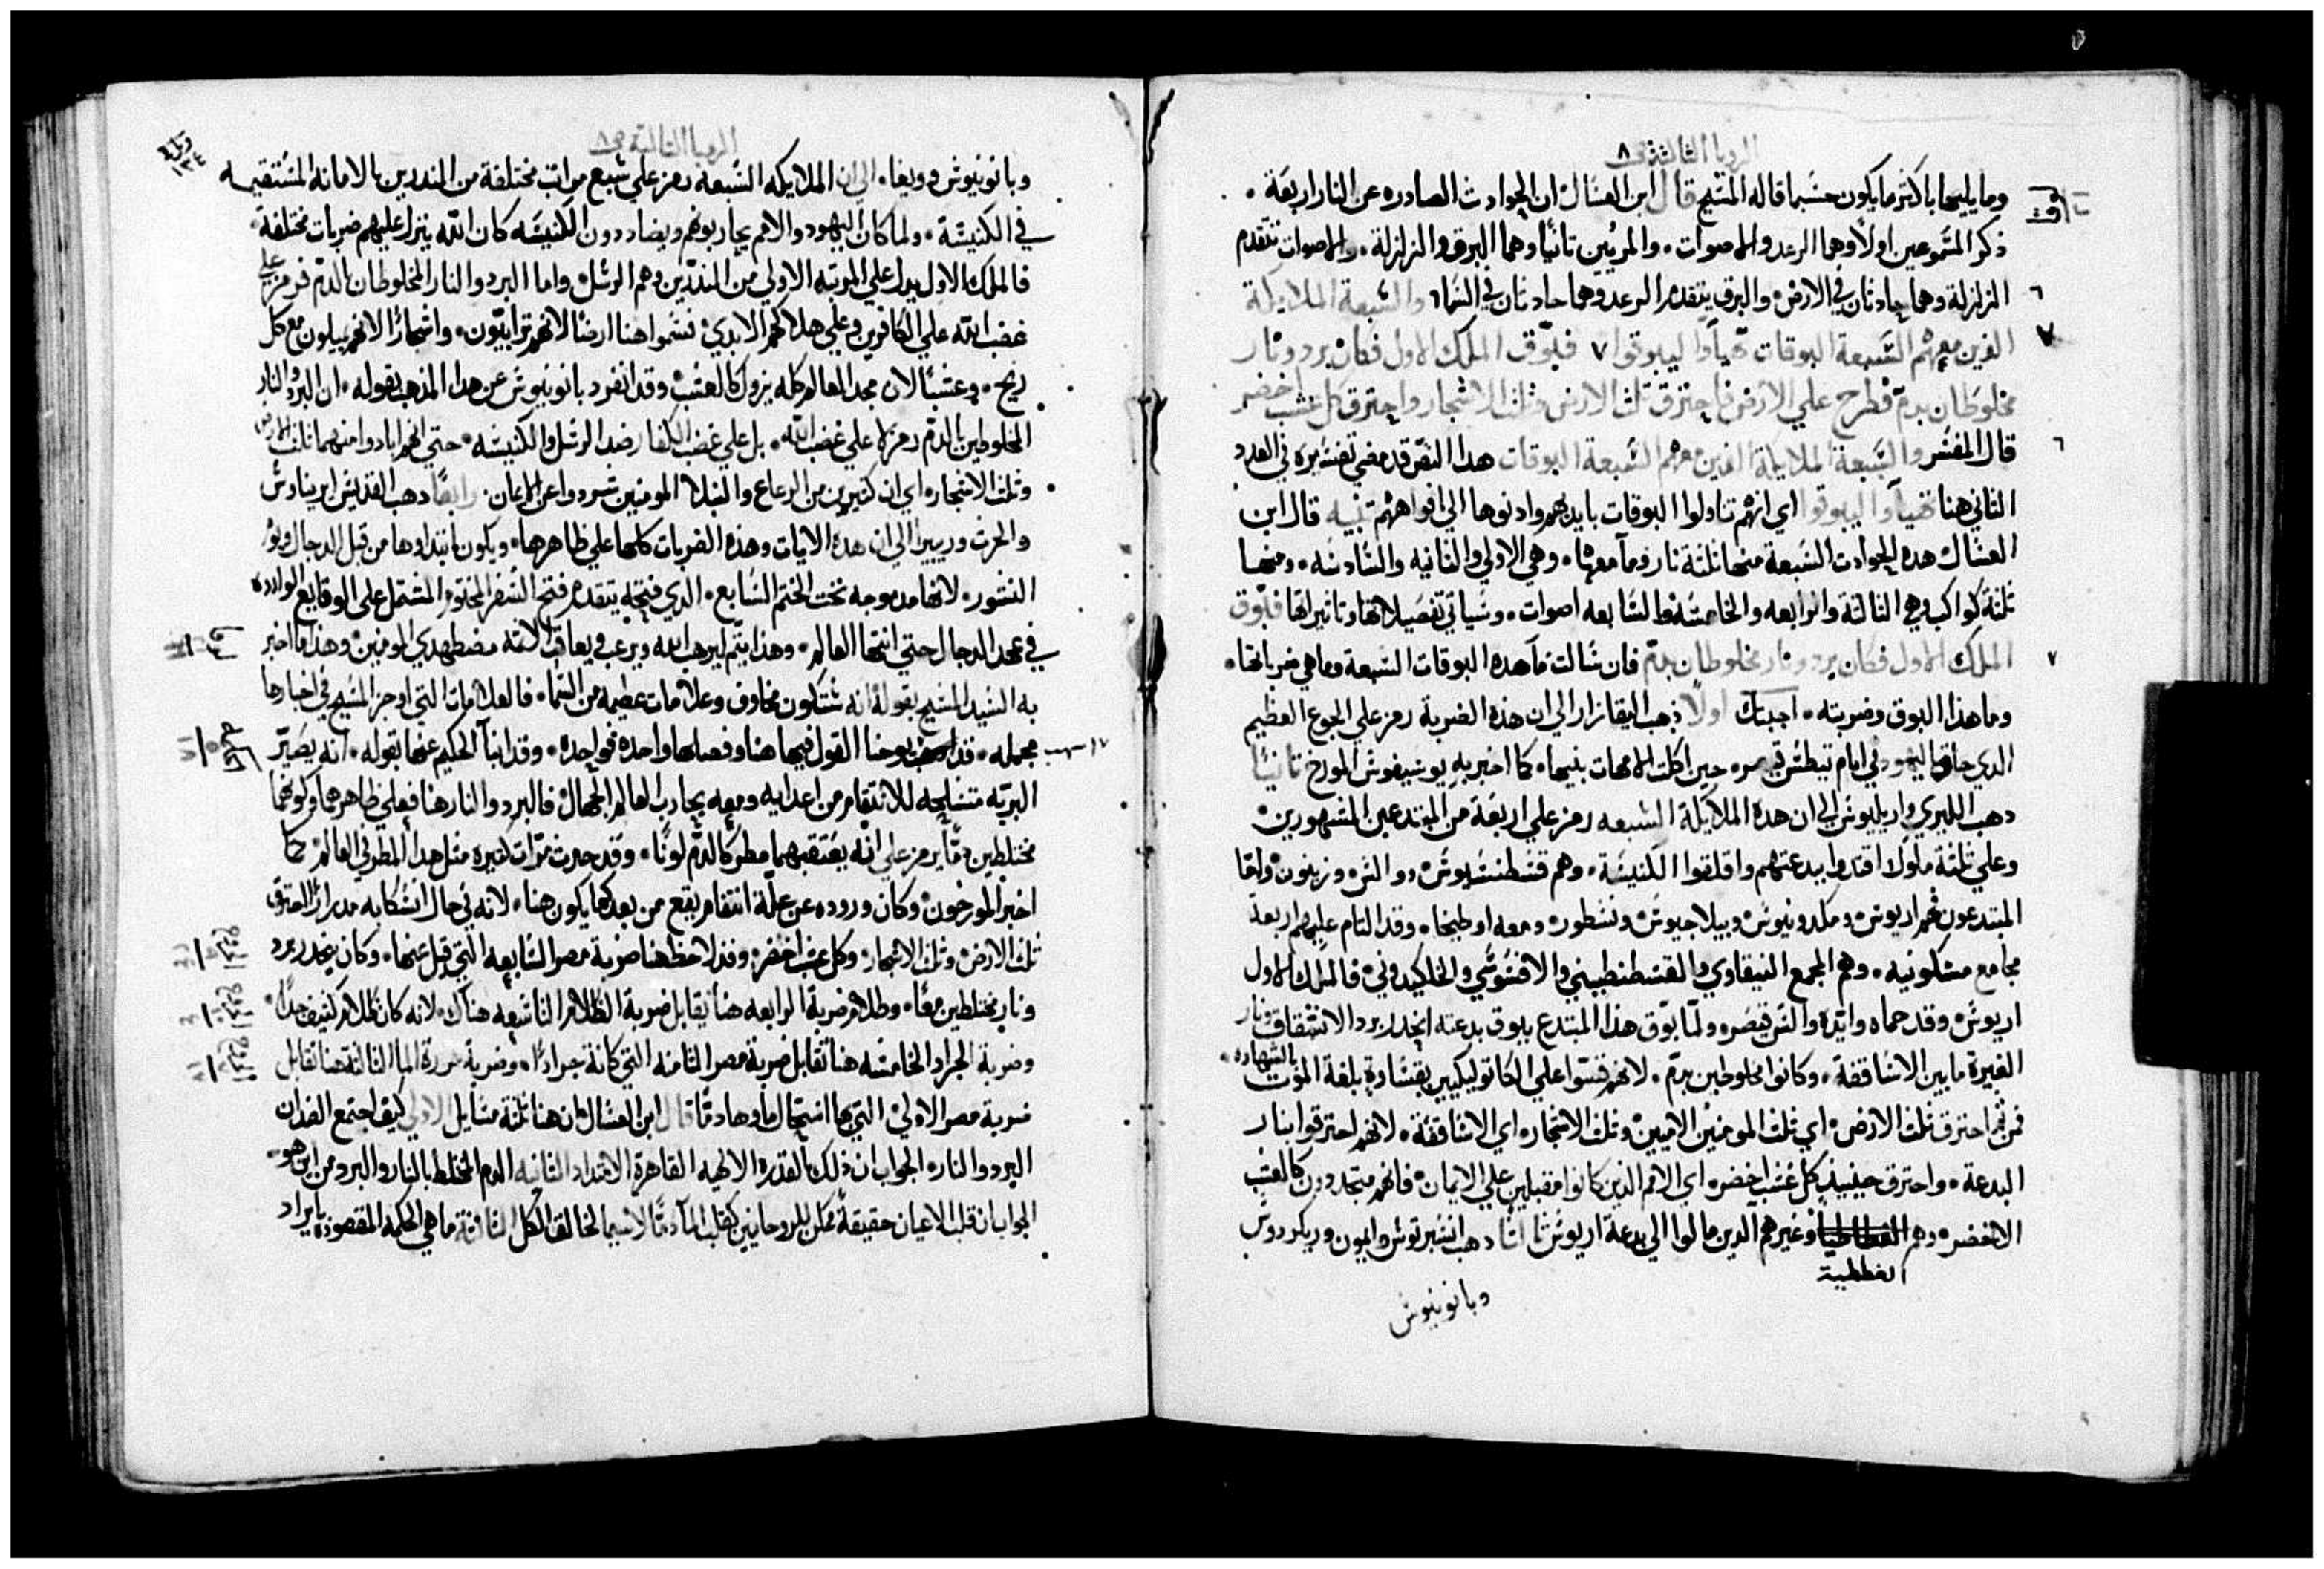 الرويا الثالثة ص ٨
وما يليها باكثر ما يكون حسبما قاله المسيح قال ابن العسال ان الحوادث الصادره عن النار اربعة .
ذكر المسموعين اولاً وهما الرعد والاصوات . والمرئيين ثانياً وهما البرق والزلزلة . والاصوات تتقدم
الزلزلة وهما حادثان في الارض والبرق يتقدم الرعد وهما حادثان في السما ٦ والسبعة الملايكة
الذين معهم السبعة البوقات تهيأوا ليبوقوا ٧ فبوّق الملك الاول فكان برد ونار
مخلوطان بدم فطرح علي الارض فاحترق ثلث الارض وثلث الاشجار واحترق كل عشب اخضر
قال المفسر والسبعة الملايكة الذين معهم السبعة البوقات هدا النص قد مضي تفسيره في العدد
الثاني هنا تهيأوا ليبوقوا اي انهم تناولوا البوقات بايديهم وادنوها الي افواههم تنبيه قال ابن
العسال هده الحوادث السبعة منها ثلثة نار وما معها . وهي الاولي والثانيه والسادسه . ومنها
ثلثة كواكب وهي الثالثة والرابعه والخامسة والسابعه اصوات . وسياتي تفصيلاتها وتاثيراتها فبوّق
الملك الاول فكان برد ونار مخلوطان بدم فان سالت ما هده البوقات السبعة وما هي ضرباتها .
وما هذا البوق وضربته . اجبتك اولاً ذهب اليقازار الي ان هذه الضربة رمز علي الجوع العظيم
الذي حاق باليهود في ايام تيطس قيصر . حين اكلت الامهات بنيها . كما اخبر به يوسيفوس المورخ ثانياً
دهب الليري واريليوس الي ان هدة الملايكة السبعه رمز علي اربعة من المبتدعين المشهورين
وعلي ثلثة ملوك اقتدوا ببدعتهم واقلقوا الكنيسة . وهم قسطنسيوس . ووالنس . وزينون واما
المبتدعون فهم اريوس . ومكدونيوس وبيلاجيوس ونسطور . ومعه اوطيخا . وقد التام عليهم اربعة
مجامع مسكونيه . وهم المجمع النيقاوي والقسطنطيني والافسوسي والخلكيدوني فالملك الاول
اريوس . وقد حماه وايده والنس قيصر . ولما بوّق هذا المبتدع ببوق بدعته انحدر برد الانشقاق ونار
الغيرة ما بين الاساقفة . وكانوا مخلوطين بدم . لانهم قسوا علي الكاتوليكيين بقساوة بلغة الموت بالشهاده .
فمن ثم احترق ثلث الارض . اي ثلث المومنين الاميين وثلث الاشجار . اي الاساقفة . لانهم احترقوا بنار
البدعة . واحترق حينيذ كل عشب اخضر . اي الامم الذين كانوا مقبلين علي الايمان . فانهم متجددون كالعشب
الاخضر . وهم الغططية وغيرهم الدين مالوا الي بدعة اريوس ثالثاً دهب انسبرتوس وايمون وريكردوس
وبانونيوس
الرويا الثالثة ص ٨
ورقة ١٣٤
وبانونيوس وويغا . الي ان الملايكه السبعة رمز علي سبع مراتب مختلفة من المنذرين بالامانه المستقيمه
في الكنيسة . ولما كان اليهود والامم يحاربونهم ويضاددون الكنيسه كان الله ينزل عليهم ضربات مختلفة .
فالملك الاول يدل علي المرتبه الاولي من المنذرين وهم الرسل . واما البرد والنار المخلوطان بالدم فرمز علي
غضب الله علي الكافرين وعلي هلاكهم الابدي . فسموا هنا ارضا لانهم ترابيون . واشجاراً لانهم يميلون مع كل
ريح . وعشباً لان مجد العالم كله يزول كالعشب . وقد انفرد بانونيوس عن هدا المذهب بقوله . ان البرد والنار
المخلوطين بالدم رمز لا علي غضب الله . بل علي غضب الكفار ضد الرسل والكنيسه . حتي انهم ابادوا منهما ثلث الارض
وثلث الاشجار . اي ان كثيرين من الرعاع والنبلا المومنين شردوا عن الايمان . رابعاً دهب القديس ايريناوس
والحرث وريبيرا الي ان هدة الايات وهذه الضربات كلها علي ظاهرها . ويكون ابتداوها من قبل الدجال
النشور . لانها مدموجه تحت الختم السابع . الدي فتحه يتقدم فتح السفر المختوم المشتمل علي الوقايع الواردة
في عهد الدجال حتي انتها العالم . وهذا يتم ليرهب الله ويرعب ويعاقب الامه مضطهدي المومنين وهذا ما اخبر
به السيد المسيح بقوله انه ستكون مخاوف وعلامات عظيمه من السما . فالعلامات التي اوجز المسيح في اخبارها
مجمله . قد يوحنا القول فيها هنا وفصلها واحده فواحدة . وقد انبأ الحكيم عنها بقوله . انه يصيّر
البريّه متسلحه للانتقام من اعدايه ومعه يحارب العالم الجهال . فالبرد والنار هنا فعلي ظاهرهما وكونهما
مختلطين دماً يرمز علي انه يعتقبهما مطر كالدم لوناً . وقد حدث مرّات كثيره مثل هدا المطر في العالم . كما
اخبر المورخون . وكان وروده عن علّة انتقام يقع من بعد كما يكون هنا . لانه في حال انسكابه مدراراً احترق
ثلث الارض . وثلث الاشجار . وكل عشب اخضر . وقد لاحظ هنا ضربة مصر السابعه التي قيل عنها . وكان ينحدر برد
ونار مختلطين معاً . وظلام ضربة الرابعه هنا يقابل ضربة الظلام التاسعه هناك . لانه كان ظلام كثيف جداً .
وضربة الجراد الخامسه هنا تقابل ضربة مصر الثامنه التي كانة جراداً . وضربة مررة الما الثالثة هنا تقابل
ضربة مصر الاولي . التي بها استحال الما وصار دماً قال ابن العسال ان هنا ثلثة مسايل الاولي كيف اجتمع الضدان
البرد والنار . الجواب ان ذلك بالقدرة الالهيه القاهرة الاضداد الثانيه الدم المختلط بالنار والبرد من اين هو .
الجواب ان قلب الاعيان حقيقة ممكن للروحانيين كقلب الما دماً لاسيما لخالق الكل الثالثة ما هي الحكمة المقصودة بايراد